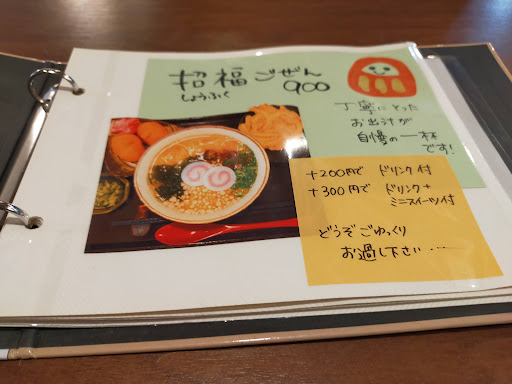 招福ごぜん
しょうふく
900
丁寧にとった
お出汁が
自慢の一杯
です!
+200円で ドリンク付
+300円で ドリンク+
ミニスイーツ付
どうぞごゆっくり
お過し下さい……